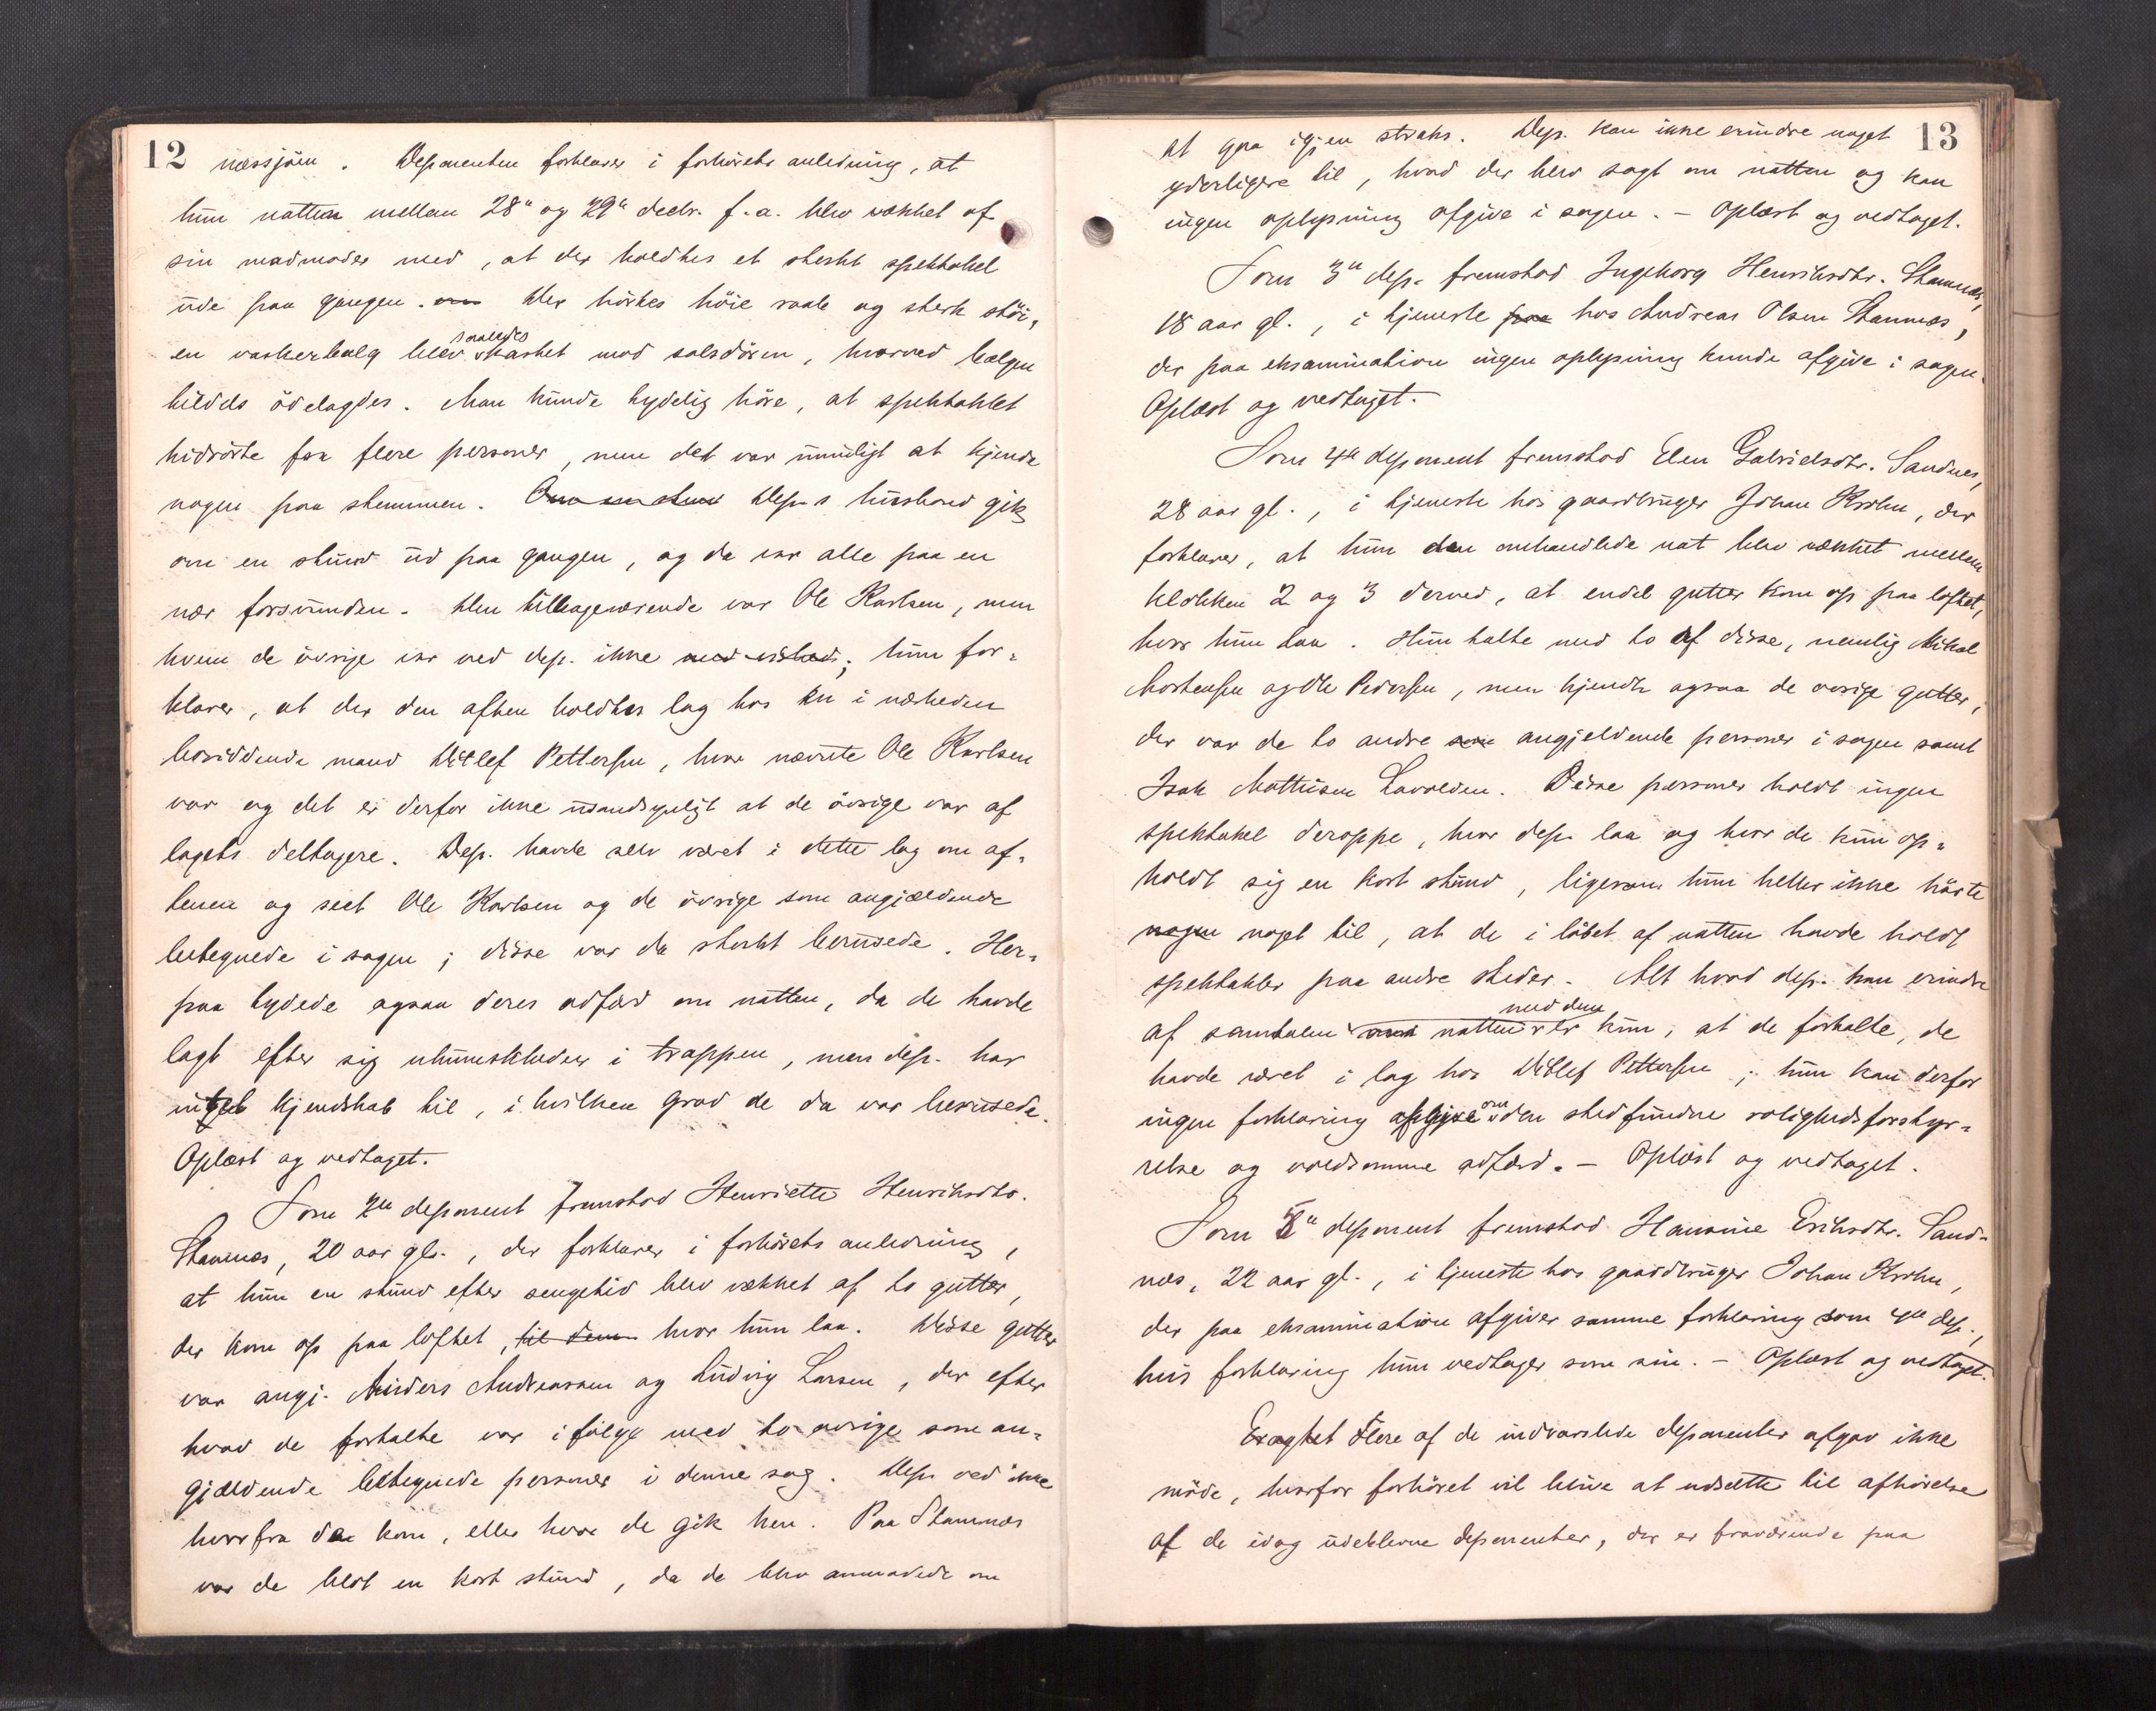 12
næssjöen. Deponenten forklarer i forhörets anledning, at
hun natten mellem 28de og 29de decbr. f.a. blev vækket af
sin madmoder med, at der holdtes et sterkt spektakel
ude paa gangen. om Der hörtes höie raab og sterk stöi,
saaledes
en vaskerbalg blev kastet mod salsdören, hvorved balgen
tildels ödelagdes. Man kunde tydelig höre, at spektaklet
hidrörte fra flere personer, men det var umuligt at kjende
nogen paa stemmen. Om en stund Dep.s husbond gik
om en stund ud paa gangen, og da var alle paa en
nær forsvunden. Den tilbageværende var Ole Karlsen, men
hvem de övrige var ved dep. ikke med vished; hun for-
klarer, at der den aften holdtes lag hos en i nærheden
bosiddende mand Ditlef Pettersen, hvor nævnte Ole Karlsen
var og det er derfor ikke usandsynligt at de övrige var af
lagets deltagere. Dep. havde selv været i dette lag om af-
tenen og seet Ole Karlsen og de övrige som angjældende
betegnede i sagen; disse var da sterkt berusede. Her-
paa tydede ogsaa deres adfærd om natten, da de havde
lagt efter sig uhumskheder i trappen, men dep. har
intet kjendskab til, i hvilken grad de da var berusede.
Oplæst og vedtaget.
Som 2de deponent fremstod Henriette Henriksdtr.
Stamnæs, 20 aar gl., der forklarer i forhörets anledning,
at hun en stund efter sengetid blev vækket af to gutter,
der kom op paa loftet, til dem hvor hun laa. Disse gutter
var angj. Anders Andreassen og Ludvig Larsen, der efter
hvad de fortalte var i fölge med to övrige som an-
gjældende betegnede personer i denne sag. Dep. ved ikke
hvorfra de kom, eller hvor de gik hen. Paa Stamnæs
var de blot en kort stund, da de blev anmodede om
13
at gaa igjen straks. Dep. kan ikke erindre noget
yderligere til, hvad der blev sagt om natten og kan
ingen oplysning afgive i sagen. – Oplæst og vedtaget.
Som 3de dep. fremstod Ingeborg Henriksdtr. Stamnæs,
18 aar gl., i tjeneste paa hos Andreas Olsen Stamnæs,
der paa eksamination ingen oplysning kunde afgive i sagen.
Oplæst og vedtaget.
Som 4de deponent fremstod Elen Gabrielsdtr. Sandnes,
28 aar gl., i tjeneste hos gaardbruger Johan Krohn, der
forklarer, at hun den omhandlede nat blev vækket mellem
klokken 2 og 3 derved, at endel gutter kom op paa loftet,
hvor hun laa. Hun talte med to af disse, nemlig Mikal
Mortensen og Ole Pedersen, men kjendte ogsaa de övrige gutter,
der var de to andre som angjeldende personer i sagen samt
Isak Mathisen Lavolden. Disse personer holdt ingen
spektakel deroppe, hvor dep. laa og hvor de kun op-
holdt sig en kort stund, ligesom hun heller ikke hörte
nogen noget til, at de i löbet af natten havde holdt
spektakler paa andre steder. Alt hvad dep. kan erindre
med dem
af samtalen om natten er kun, at de fortalte, de
havde været i lag hos Ditlef Pettersen; hun kan derfor
ingen forklaring afgive om den stedfundne rolighedsforstyr-
relse og voldsomme adfærd. – Oplæst og vedtaget.
Som 5de deponent fremstod Hansine Eriksdtr. Sand-
næs, 22 aar gl., i tjeneste hos gaardbruger Johan Krohn,
der paa eksamination afgiver samme forklaring som 4de dep.,
hvis forklaring hun vedtager som sin. – Oplæst og vedtaget.
Flere af de indvarslede deponenter afgav ikke
möde, hvorfor forhöret vil blive at udsætte til afhörelse
af de idag udeblevne deponenter, der er fraværende paa